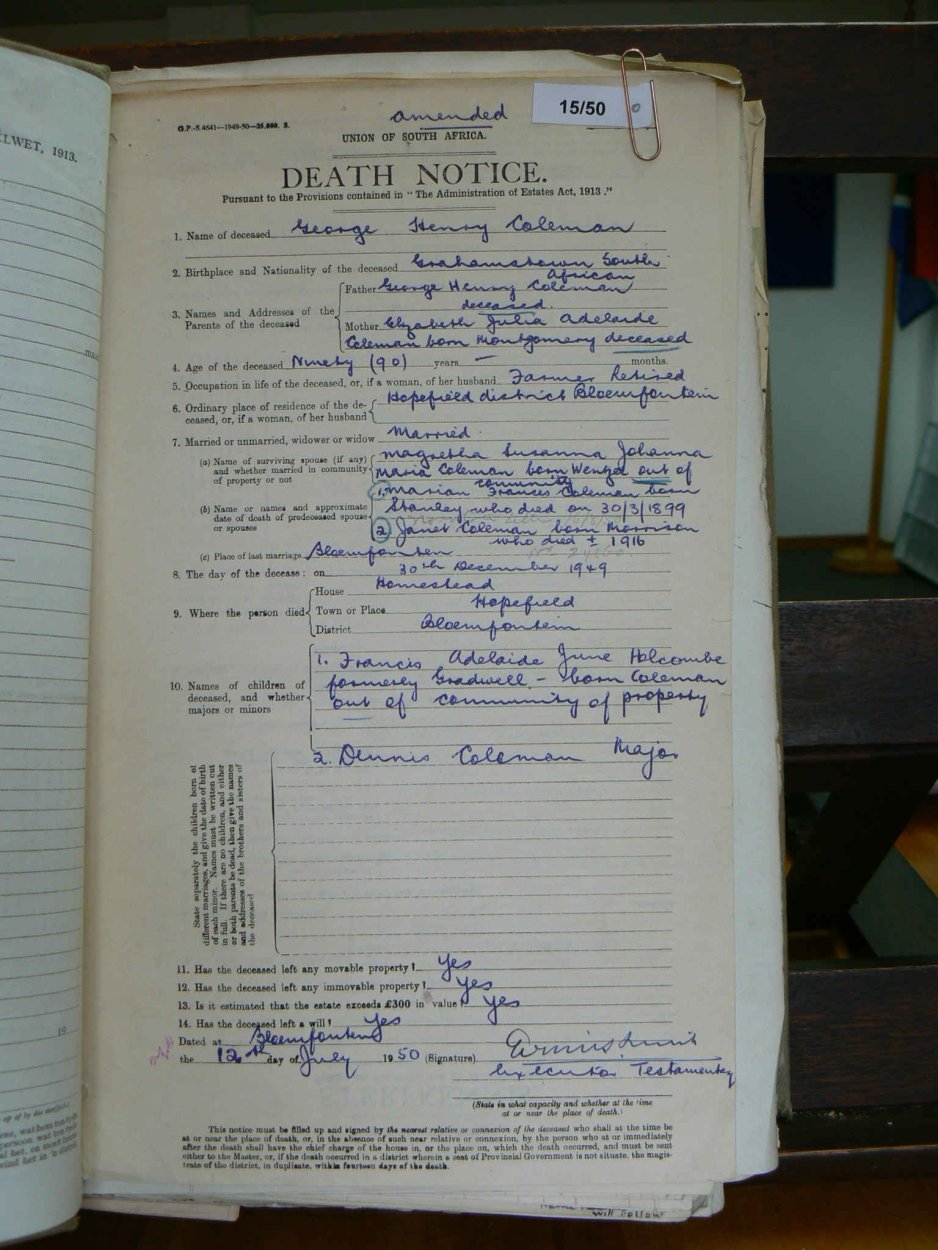 ELWET, 1913.
15/50
amended
G.P.-S.4641—1949-50—36,000. S.
UNION OF SOUTH AFRICA.
DEATH NOTICE.
Pursuant to the Provisions contained in “ The Administration of Estates Act, 1913 .”
1. Name of deceased George Henry Coleman
2. Birthplace and Nationality of the deceased Grahamstown South
African
3. Names and Addresses of the Parents of the deceased
Father George Henry Coleman
deceased.
Mother Elizabeth Julia Adelaide
Coleman born Montgomery deceased
4. Age of the deceased Ninety (90) years — months.
5. Occupation in life of the deceased, or, if a woman, of her husband Farmer Retired
6. Ordinary place of residence of the de-
ceased, or, if a woman, of her husband
Hopefield district Bloemfontein
7. Married or unmarried, widower or widow Married.
(a) Name of surviving spouse (if any)
and whether married in community
of property or not
Magretha Susanna Johanna
Maria Coleman born Wentzel out of
community
(b) Name or names and approximate
date of death of predeceased spouse
or spouses
1. Marian Frances Coleman born
Stanley who died on 30/3/1899
2 Janet Coleman born Morrison
who died ± 1916
(c) Place of last marriage Bloemfontein
8. The day of the decease: on 30th December 1949
9. Where the person died
House Homestead
Town or Place Hopefield
District Bloemfontein
10. Names of children of
deceased, and whether
majors or minors
1. Francis Adelaide June Holcombe
formerly Gradwell - born Coleman
out of community of property
2. Dennis Coleman Major
State separately the children born of
different marriages, and give the date of birth
of each minor. Names must be written out
in full. If there are no children, and either
or both parents be dead, then give the names
and addresses of the brothers and sisters of
the deceased
11. Has the deceased left any movable property? Yes
12. Has the deceased left any immovable property? Yes
13. Is it estimated that the estate exceeds £300 in value? Yes
14. Has the deceased left a will? Yes
Dated at Bloemfontein
the 12th day of July 1950 (Signature)
Executor Testamentary
(State in what capacity and whether at the time
at or near the place of death.)
This notice must be filled up and signed by the nearest relative or connexion of the deceased who shall at the time be
at or near the place of death, or, in the absence of such near relative or connexion, by the person who at or immediately
after the death shall have the chief charge of the house in, or the place on, which the death occurred, and must be sent
either to the Master, or, if the death occurred in a district wherein a seat of Provincial Government is not situate, the magis-
trate of the district, in duplicate, within fourteen days of the death.
will follow